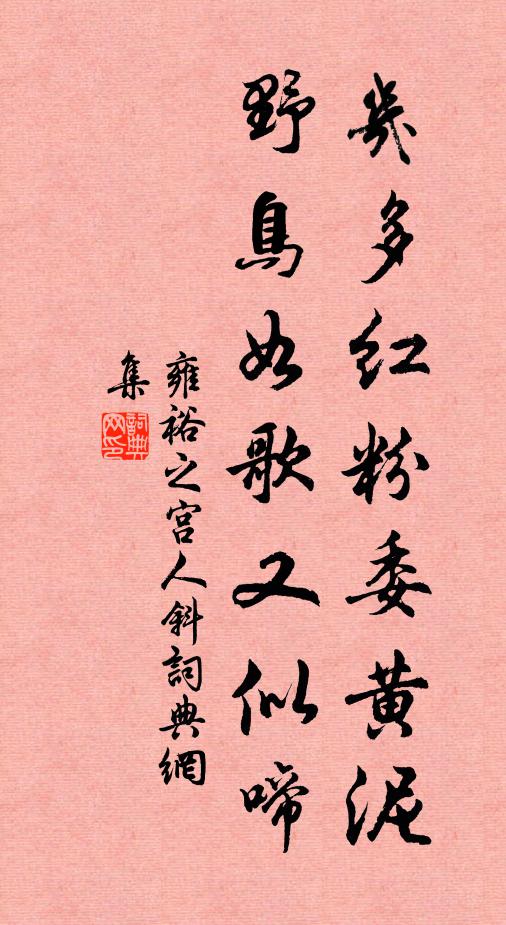 幾多红粉委黄泥
野鳥如歌又似啼
雍裕之宫人斜詞典網
集
詞典
网印